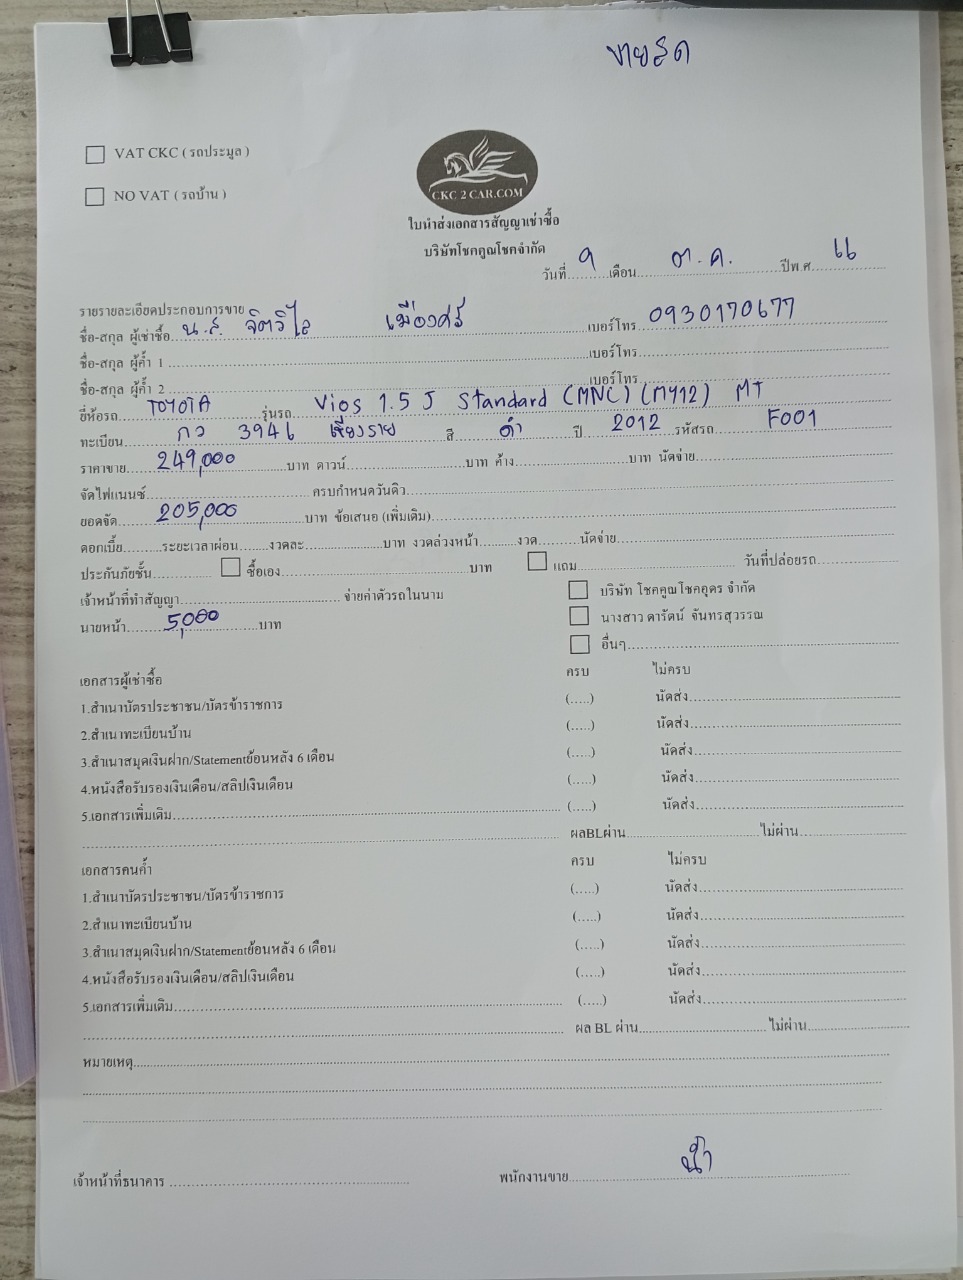 ขายสด
VAT CKC ( รถประมูล )
NO VAT ( รถบ้าน )
CKC 2 CAR.COM
ใบนำส่งเอกสารสัญญาเช่าซื้อ
บริษัทโชคคูณโชคจำกัด
วันที่.....9.....เดือน.....ต.ค......ปีพ.ศ.....66.....
รายรายละเอียดประกอบการขาย
ชื่อ-สกุล ผู้เช่าซื้อ...น.ส. จิตวิไล เมืองศรี...เบอร์โทร 0930170677
ชื่อ-สกุล ผู้ค้ำ 1 ..........เบอร์โทร..........
ชื่อ-สกุล ผู้ค้ำ 2 ..........เบอร์โทร..........
ยี่ห้อรถ.....TOYOTA.....รุ่นรถ.....Vios 1.5 J Standard (MNC) (MY12) MT
ทะเบียน.....กว 3946 เชียงราย.....สี.....ดำ.....ปี.....2012.....รหัสรถ.....F001.....
ราคาขาย.....249,000.....บาท ดาวน์..........บาท ค้าง..........บาท นัดจ่าย..........
จัดไฟแนนซ์..........ครบกำหนดวันดิว..........
ยอดจัด.....205,000.....บาท ข้อเสนอ (เพิ่มเติม)..........
ดอกเบี้ย..........ระยะเวลาผ่อน........งวดละ..........บาท งวดล่วงหน้า..........งวด..........นัดจ่าย..........
ประกันภัยชั้น.......... ซื้อเอง..........บาท แถม.......... วันที่ปล่อยรถ..........
เจ้าหน้าที่ทำสัญญา..........จ่ายค่าตัวรถในนาม บริษัท โชคคูณโชคอุดร จำกัด
นายหน้า.....5,000.....บาท นางสาว ดารัตน์ จันทรสุวรรณ
อื่นๆ..........
เอกสารผู้เช่าซื้อ ครบ ไม่ครบ
1.สำเนาบัตรประชาชน/บัตรข้าราชการ (.....) นัดส่ง..........
2.สำเน าทะเบียนบ้าน (.....) นัดส่ง..........
3.สำเนาสมุดเงินฝาก/Statementย้อนหลัง 6 เดือน (.....) นัดส่ง..........
4.หนังสือรับรองเงินเดือน/สลิปเงินเดือน (.....) นัดส่ง..........
5.เอกสารเพิ่มเติม.......... (.....) นัดส่ง..........
.......... ผลBLผ่าน..........ไม่ผ่าน..........
เอกสารคนค้ำ ครบ ไม่ครบ
1.สำเนาบัตรประชาชน/บัตรข้าราชการ (.....) นัดส่ง..........
2.สำเนาทะเบียนบ้าน (.....) นัดส่ง..........
3.สำเนาสมุดเงินฝาก/Statementย้อนหลัง 6 เดือน (.....) นัดส่ง..........
4.หนังสือรับรองเงินเดือน/สลิปเงินเดือน (.....) นัดส่ง..........
5.เอกสารเพิ่มเติม.......... (.....) นัดส่ง..........
.......... ผล BL ผ่าน..........ไม่ผ่าน..........
หมายเหตุ..........
เจ้าหน้าที่ธนาคาร .......... พนักงานขาย.....น้ำ.....